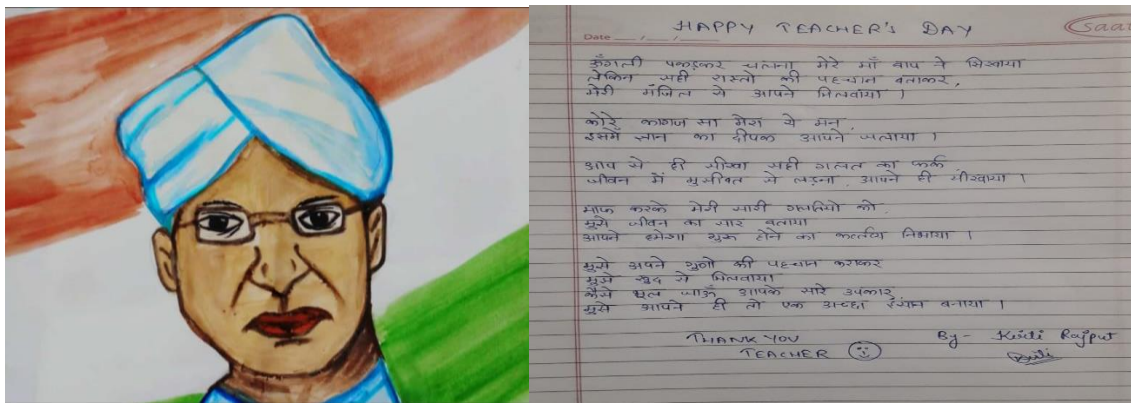 HAPPY TEACHER'S DAY
Date
उँगली पकड़कर चलना मेरे माँ बाप ने सिखाया
लेकिन सही रास्तो की पहचान बताकर,
मेरी मंजिल से आपने मिलवाया ।
कोरे कागज सा मेरा ये मन,
इसमें ज्ञान का दीपक आपने जलाया ।
आप से ही सीखा सही गलत का फर्क
जीवन में मुसीबत से लड़ना, आपने ही सीखाया ।
माफ करके मेरी सारी गलतियो को,
मुझे जीवन का सार बताया
आपने हमेशा गुरू होने का कर्त्तव्य निभाया ।
मुझे अपने गुणो की पहचान कराकर
मुझे खुद से मिलवाया
कैसे भूल जाऊँ आपके सारे उपकार,
मुझे आपने ही तो एक अच्छा इंसान बनाया ।
THANK YOU
TEACHER
By- Rajput